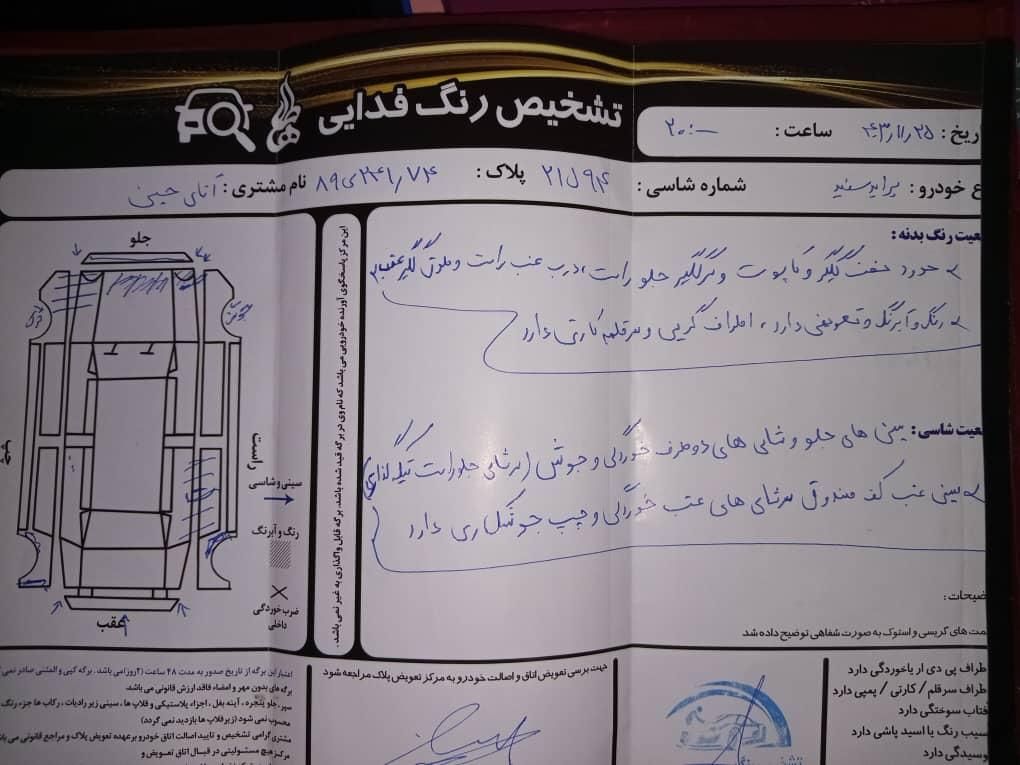 تشخیص رنگ فدایی
اریخ: ۴۳٫۱۱٫۲۵ ساعت: ۲۰:—
ع خودرو: پراید سفید شماره شاسی: پلاک: ۲۱ ل ۹۱۴
نام مشتری: آقای حسن
عیت رنگ بدنه:
حدود جفت گلگیر و کاپوت و گلگیر جلو راست، درب عقب راست و گلگیر عقب
رنگ و آبرنگ و تعویضی دارد، اطراف گریس و سرقلم کاری دارد
عیت شاسی: سینی های جلو و شاسی های دو طرف خوردگی و جوش (سرشاسی جلو راست
سینی عقب کف صندوق سرشاسی های عقب خوردگی و چپ جوشکاری دارد
ضیحات:
مت های گریسی و استوک به صورت شفاهی توضیح داده شد
این مرکز پاسخگوی آورنده خودرویی می باشد که نام وی در برگه قید شده باشد. برگه قابل واگذاری به غیر نمی باشد.
جلو
راست
چپ
سینی و شاسی
رنگ و آبرنگ
ضرب خوردگی
داخلی
عقب
طراف پی دی ار یا خوردگی دارد
طراف سرقلم / کارتی / پمپی دارد
فتاب سوختگی دارد
سیب رنگ یا اسید پاشی دارد
وسیدگی دارد
جهت برسی تعویض اتاق و اصالت خودرو به مرکز تعویض پلاک مراجعه شود
اعتبار این برگه از تاریخ صدور به مدت ۴۸ ساعت (۲روز) می باشد. برگه کپی و المثنی صادر نمی
برگه های بدون مهر و امضاء فاقد ارزش قانونی می باشد.
سپر، جلو پنجره، آینه بغل، اجزاء پلاستیکی و قلاپ ها، سینی زیر رادیات، رکاب ها جزء رنگ
محسوب نمی شود (زیر قلاپ ها بازدید نمی گردد)
مشتری گرامی تشخیص و تایید اصالت اتاق خودرو بر عهده تعویض پلاک و مراجع قانونی می با
مرکز هیچ مسئولیتی در قبال اتاق تعویض و